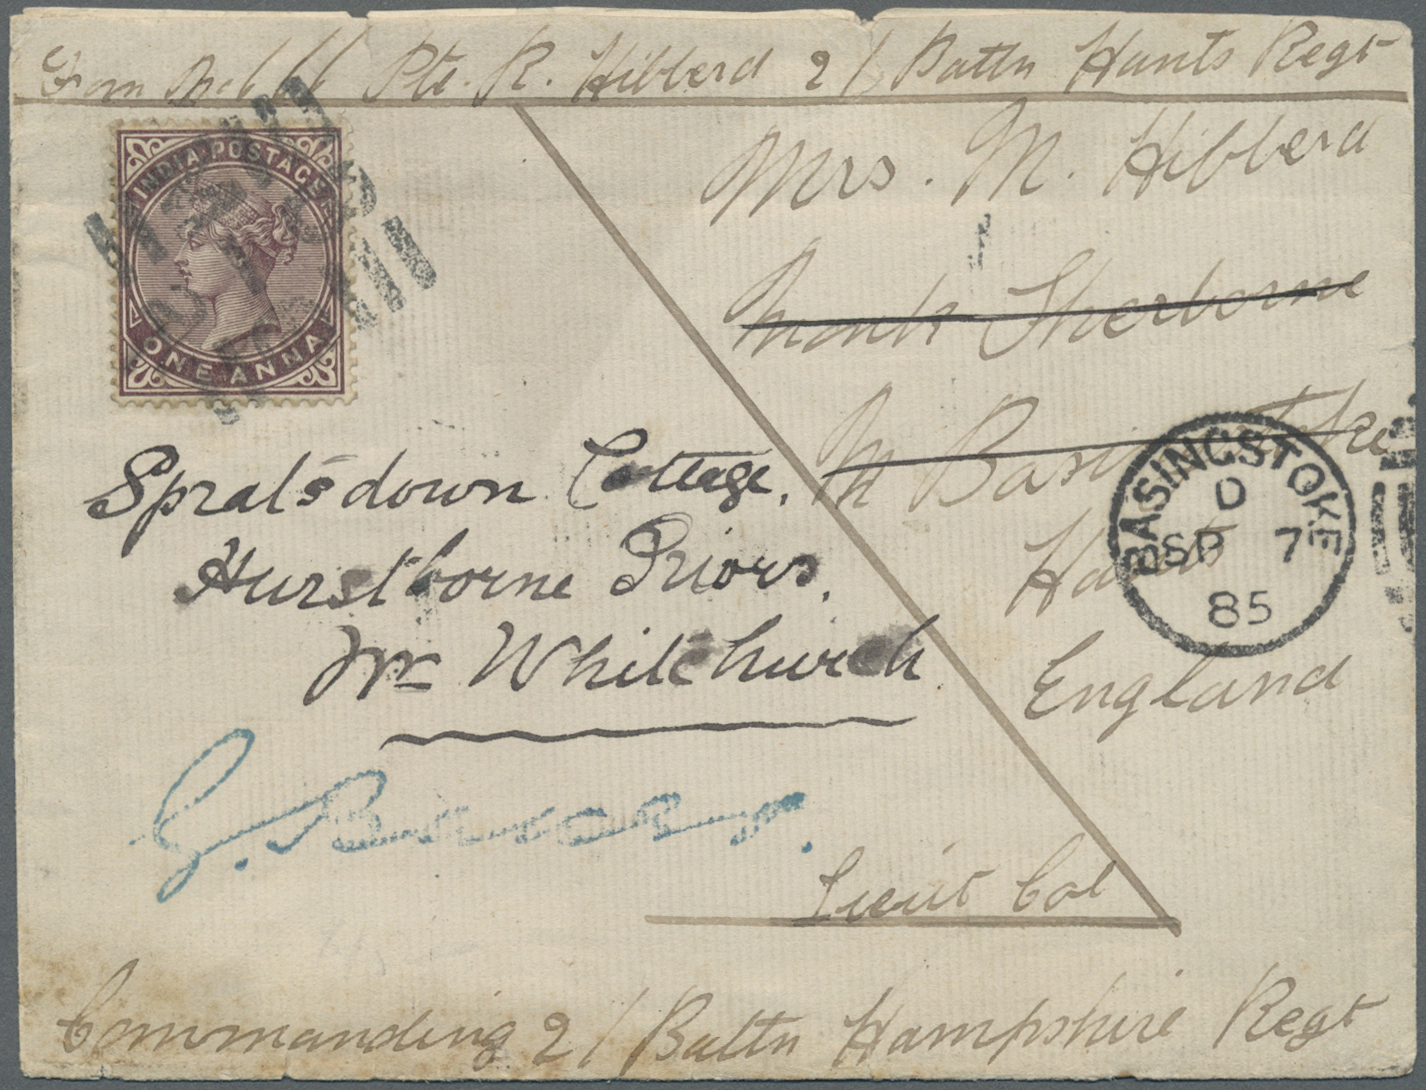 From No 66 Pte. R. Hibberd 2/ Battn Hants Regt
INDIA POSTAGE
ONE ANNA
Mrs. M. Hibberd
Monk Sherborne
Nr Basingstoke
Hants
England
BASINGSTOKE
D
SP 7
85
Spratsdown Cottage,
Hurstborne Priors,
Nr Whitchurch
Lieut Col
Commanding 2/ Battn Hampshire Regt